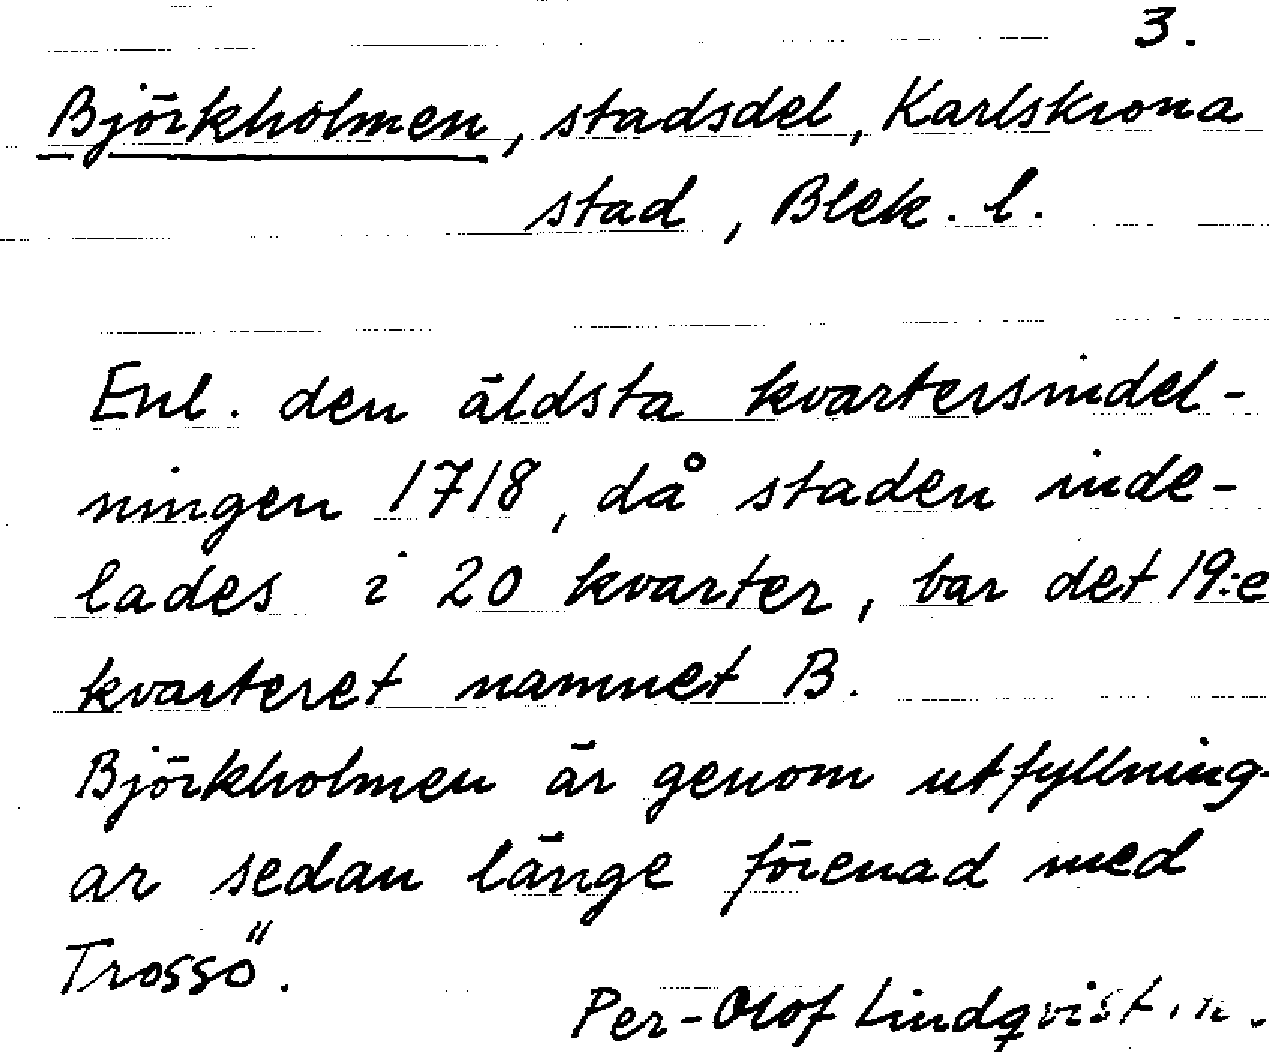 3.
Björkholmen, stadsdel, Karlskrona
stad, Blek. l.
Enl. den äldsta kvartersindel-
ningen 1718, då staden inde-
lades i 20 kvarter, bar det 19:e
kvarteret namnet B.
Björkholmen är genom utfyllning-
ar sedan länge förenad med
Trossö.
Per-Olof Lindqvist